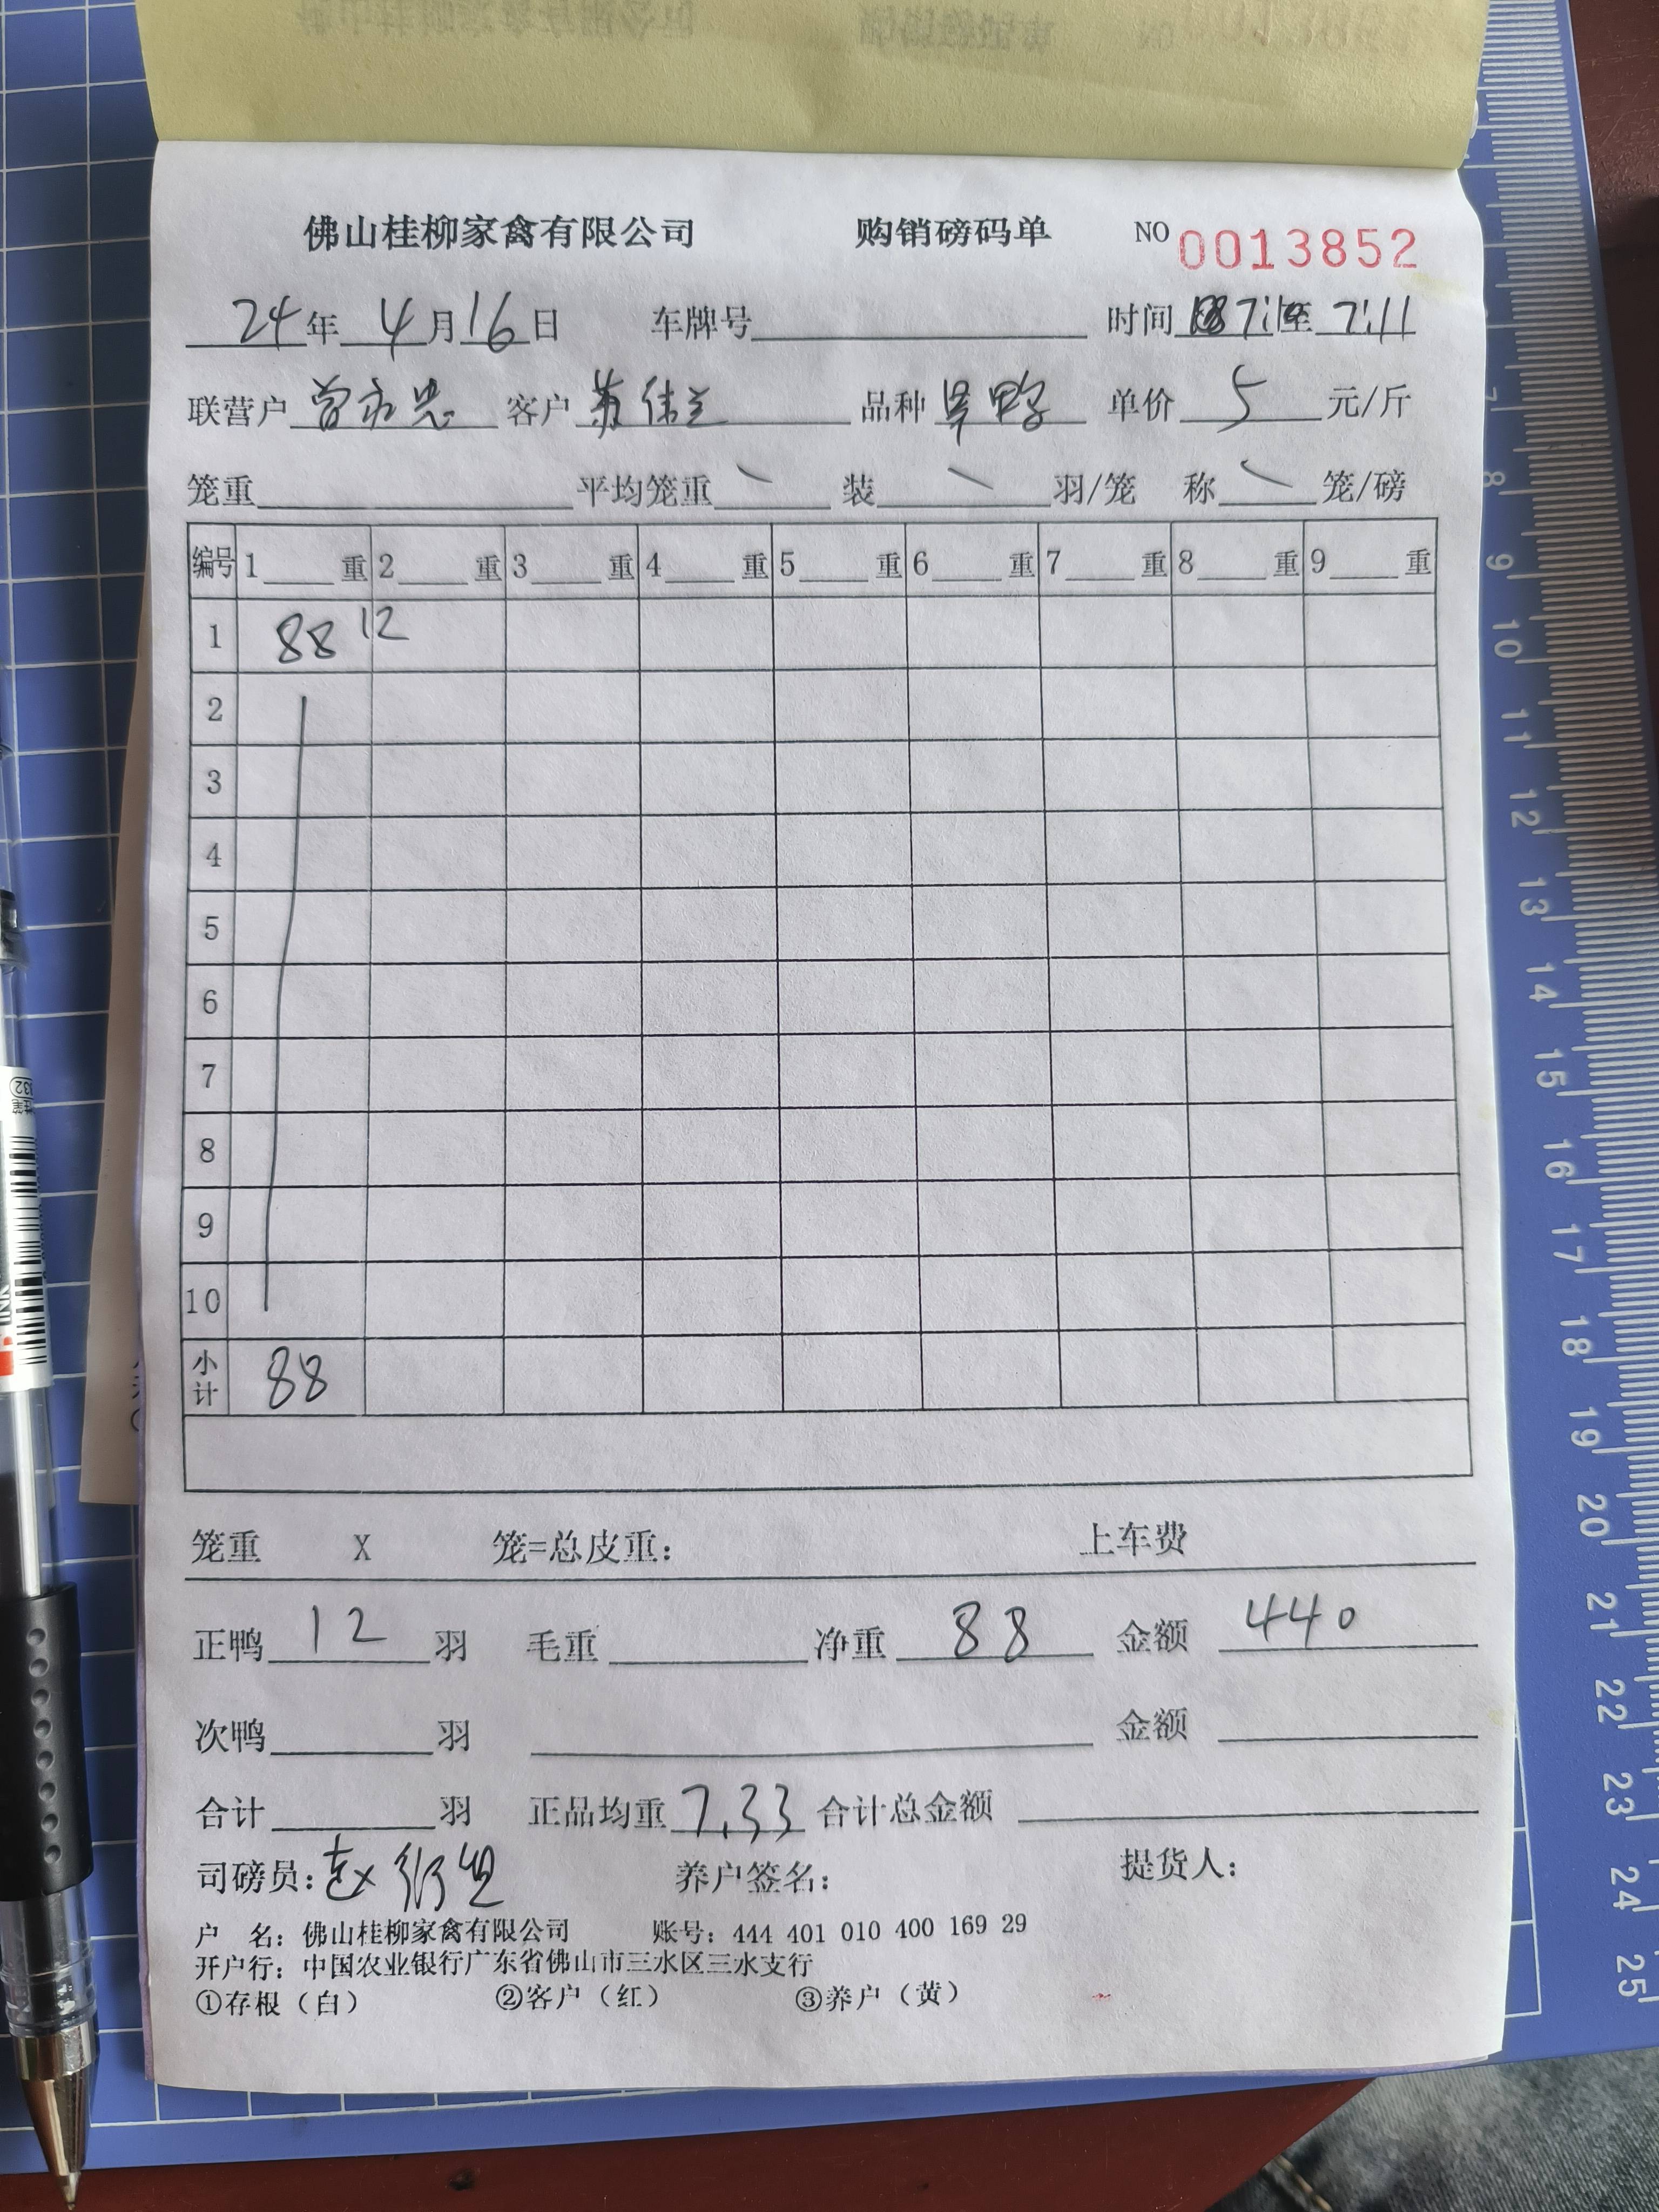 佛山桂柳家禽有限公司 购销磅码单 NO 0013852
24年 4月16日 车牌号 时间 7:10至 7:11
联营户 曾永忠 客户 苏伟兰 品种 旱鸭 单价 5 元/斤
笼重 平均笼重 装 羽/笼 称 笼/磅
编号 1 重 2 重 3 重 4 重 5 重 6 重 7 重 8 重 9 重
1 88 12
2
3
4
5
6
7
8
9
10
小计 88
笼重 X 笼=总皮重: 上车费
正鸭 12 羽 毛重 净重 88 金额 440
次鸭 羽 金额
合计 羽 正品均重 7.33 合计总金额
司磅员: 赵 养户签名: 提货人:
户 名: 佛山桂柳家禽有限公司 账号: 444 401 010 400 169 29
开户行: 中国农业银行广东省佛山市三水区三水支行
①存根（白） ②客户（红） ③养户（黄）
7
8
9
10
11
12
13
14
15
16
17
18
19
20
21
22
23
24
25